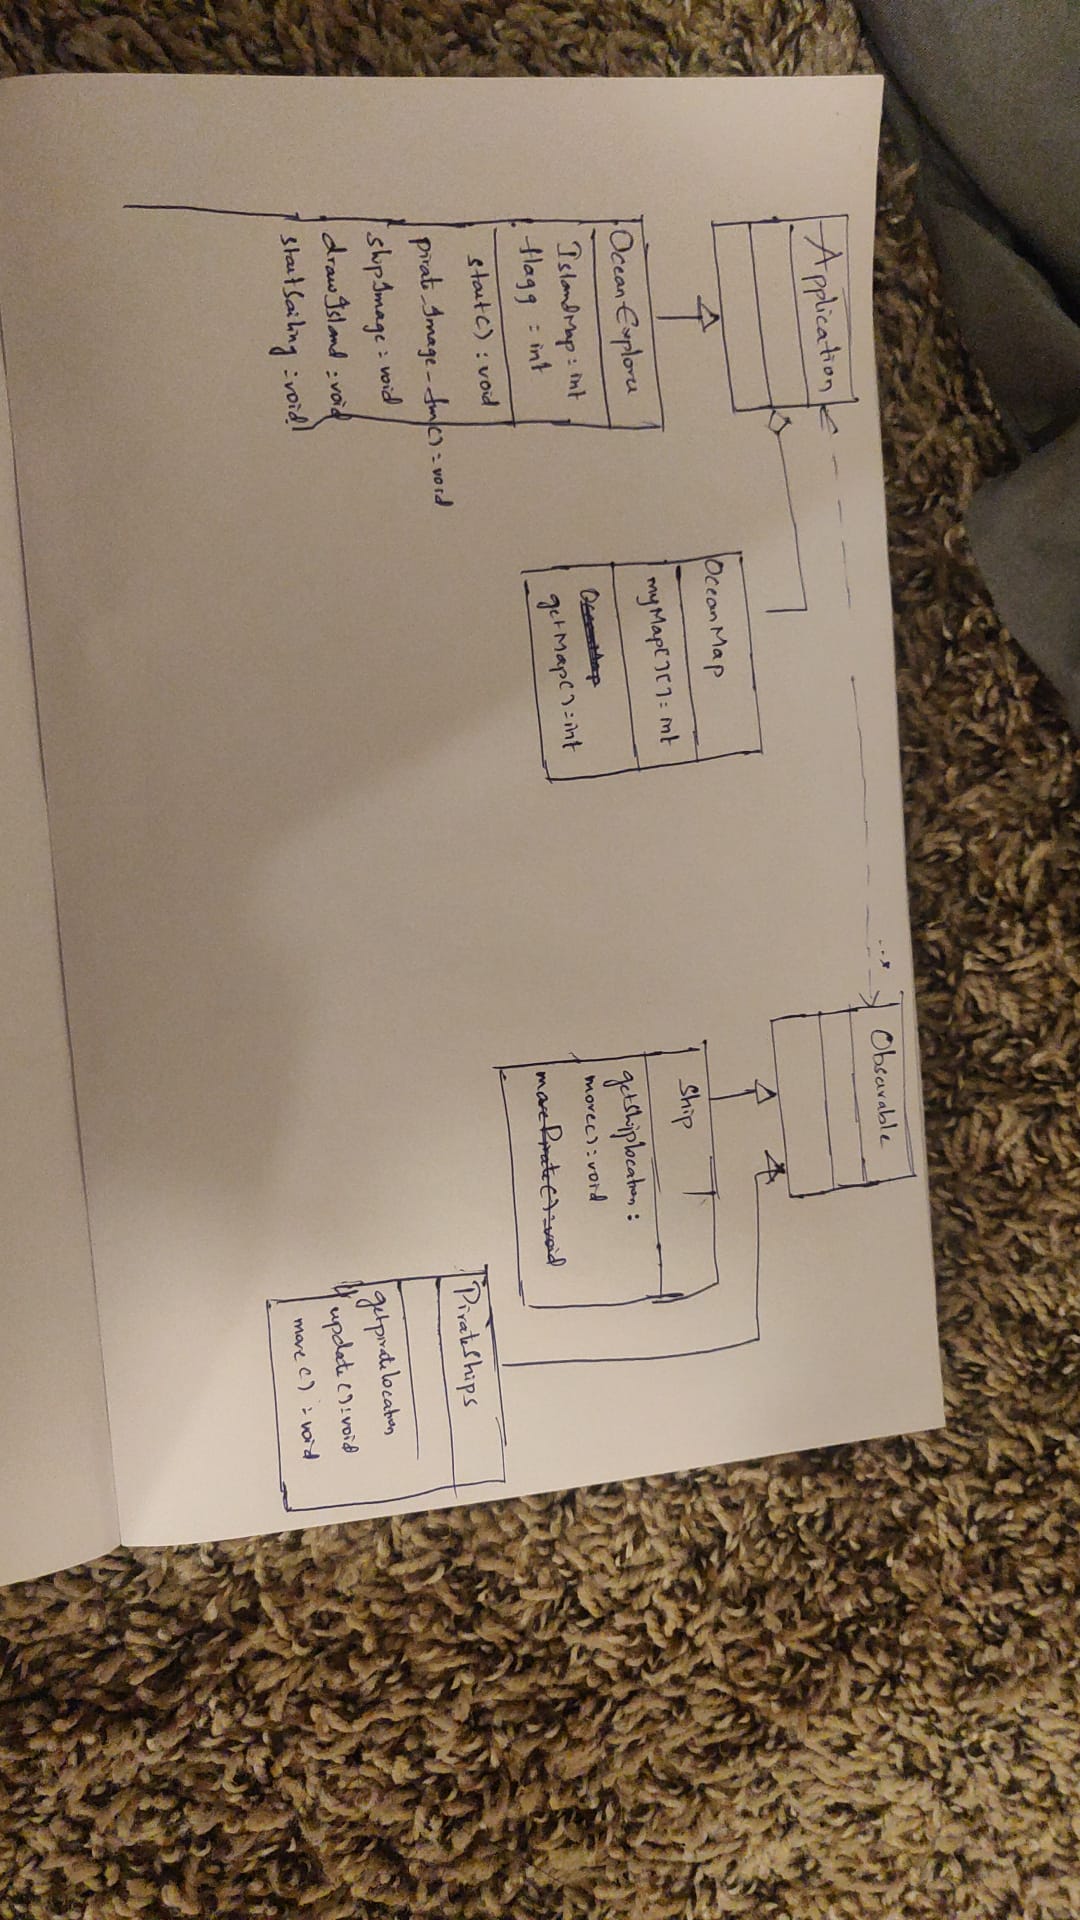 Application
OceanExplorer
IslandMap: int
flagg : int
start() : void
pirate_Image_Im() : void
shipImage : void
drawIsland : void
startSailing : void
OceanMap
myMap[][] : int
getMap() : int
Observable
Ship
getshiplocation :
move() : void
movePirate() : void
PirateShips
getpiratelocation
update() : void
move() : void